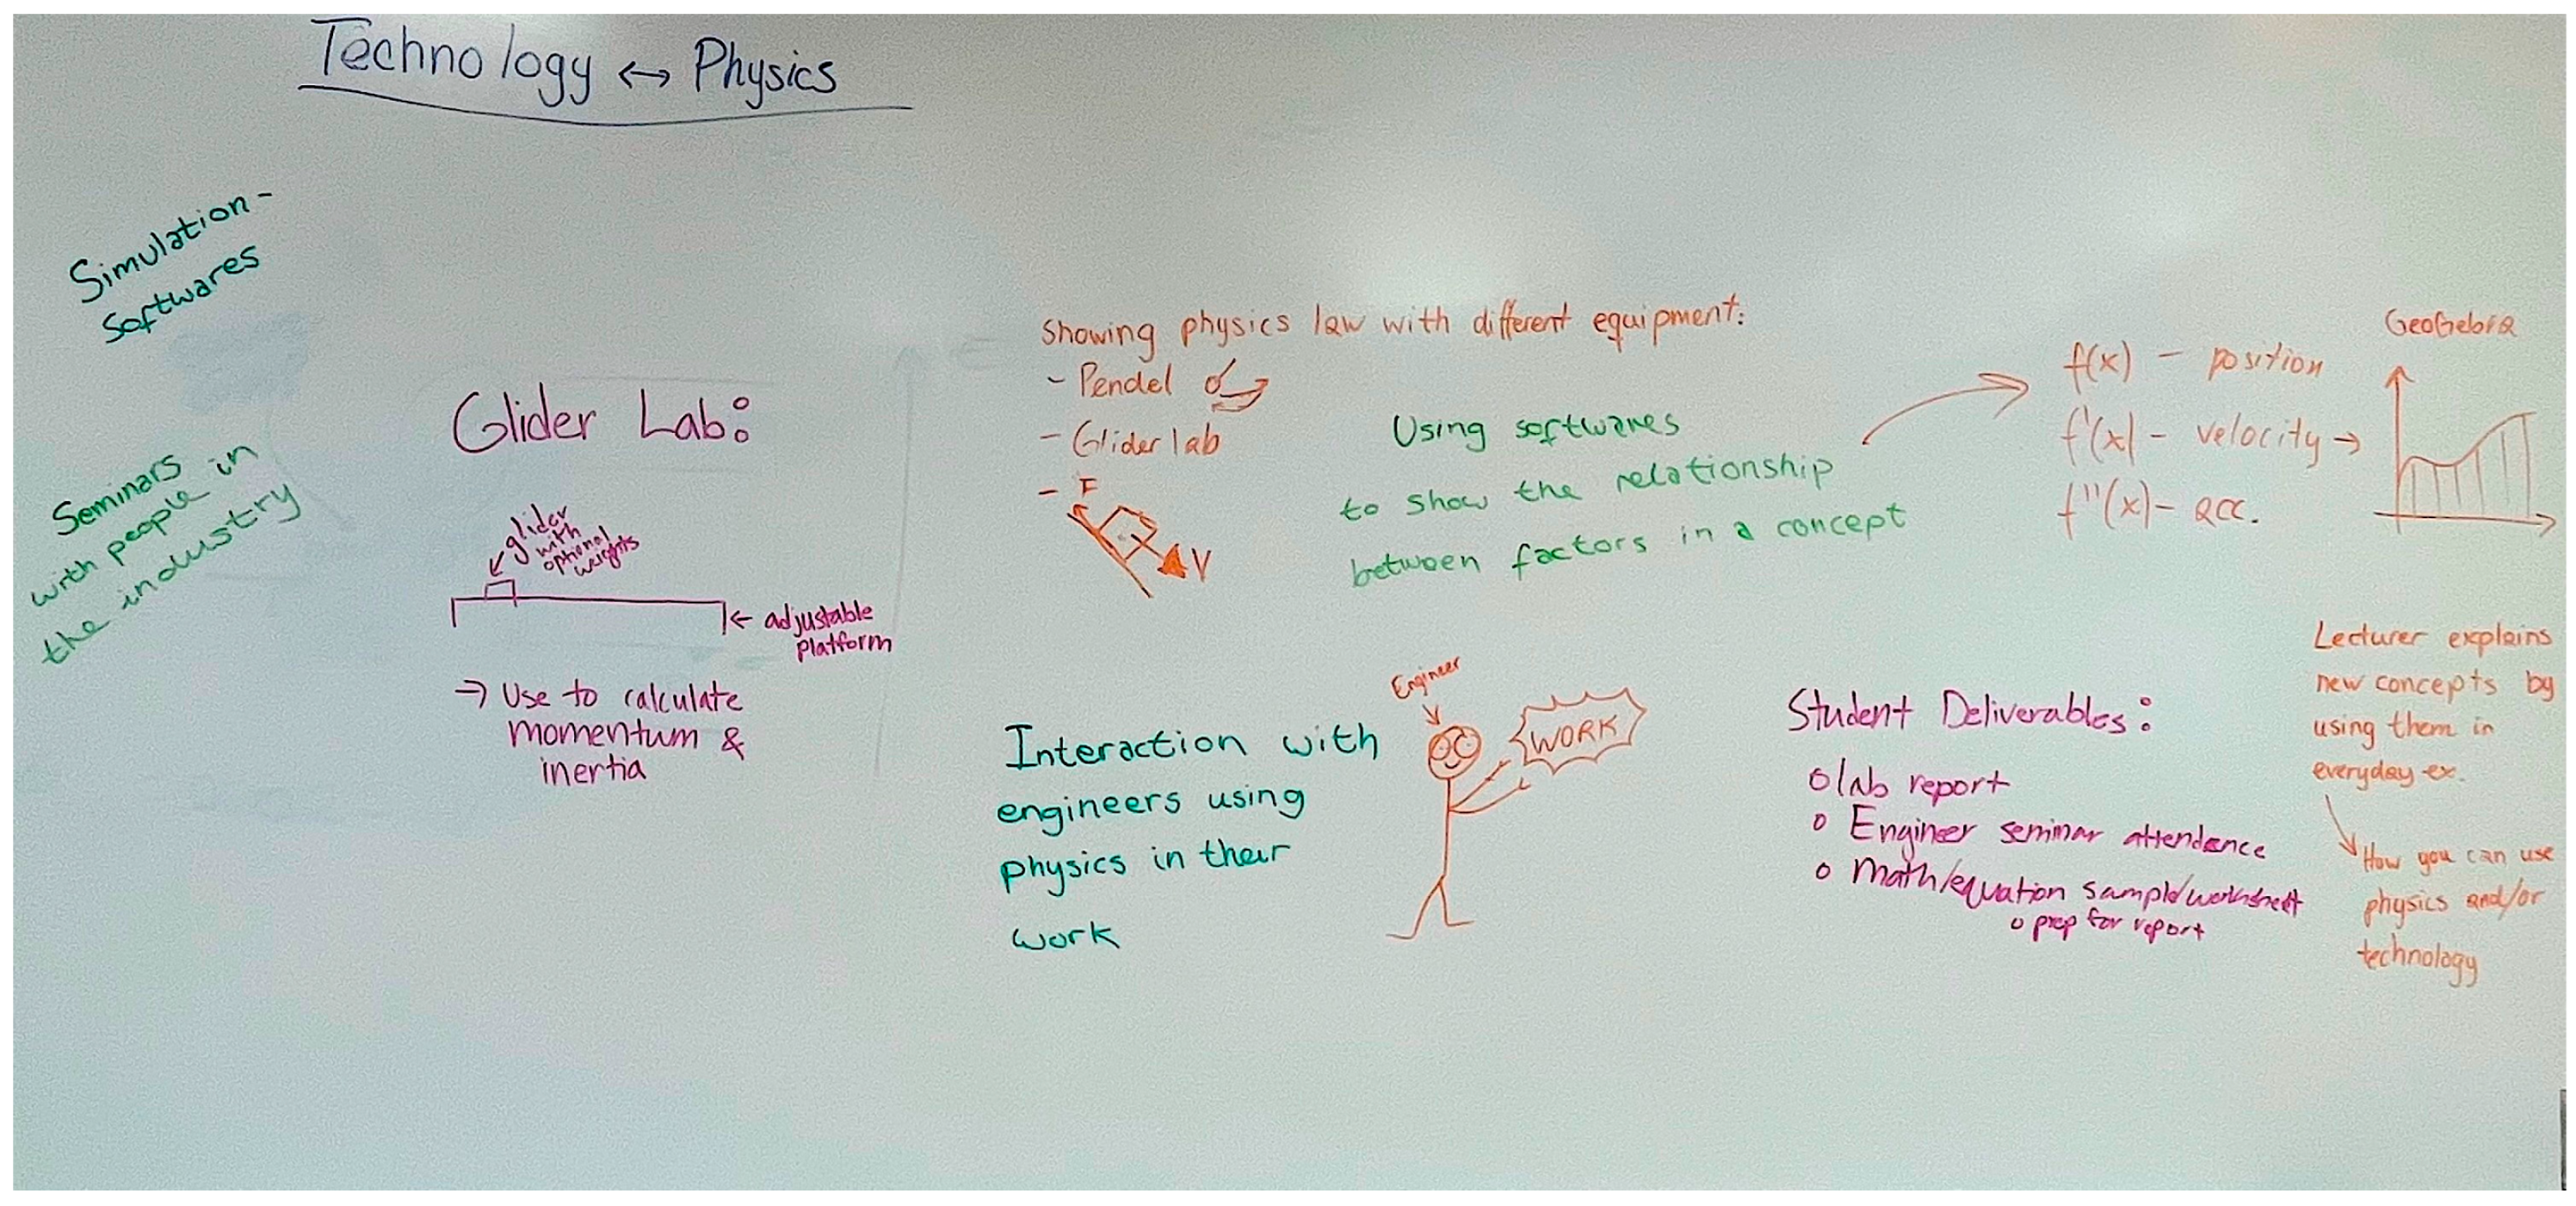 Technology ↔ Physics
Simulation-
Softwares
Seminars
with people in
the industry
Glider Lab:
glider
with
optional
weights
← adjustable
platform
→ Use to calculate
momentum &
inertia
Showing physics law with different equipment:
- Pendel
- Glider lab
- F
V
Using softwares
to show the relationship
between factors in a concept
GeoGebra
f(x) - position
f'(x) - velocity →
f''(x) - acc.
Interaction with
engineers using
physics in their
work
Engineer
WORK
Student Deliverables:
o lab report
o Engineer seminar attendance
o Math/equation sample/worksheet
o prep for report
Lecturer explains
new concepts by
using them in
everyday ex.
How you can use
physics and/or
technology